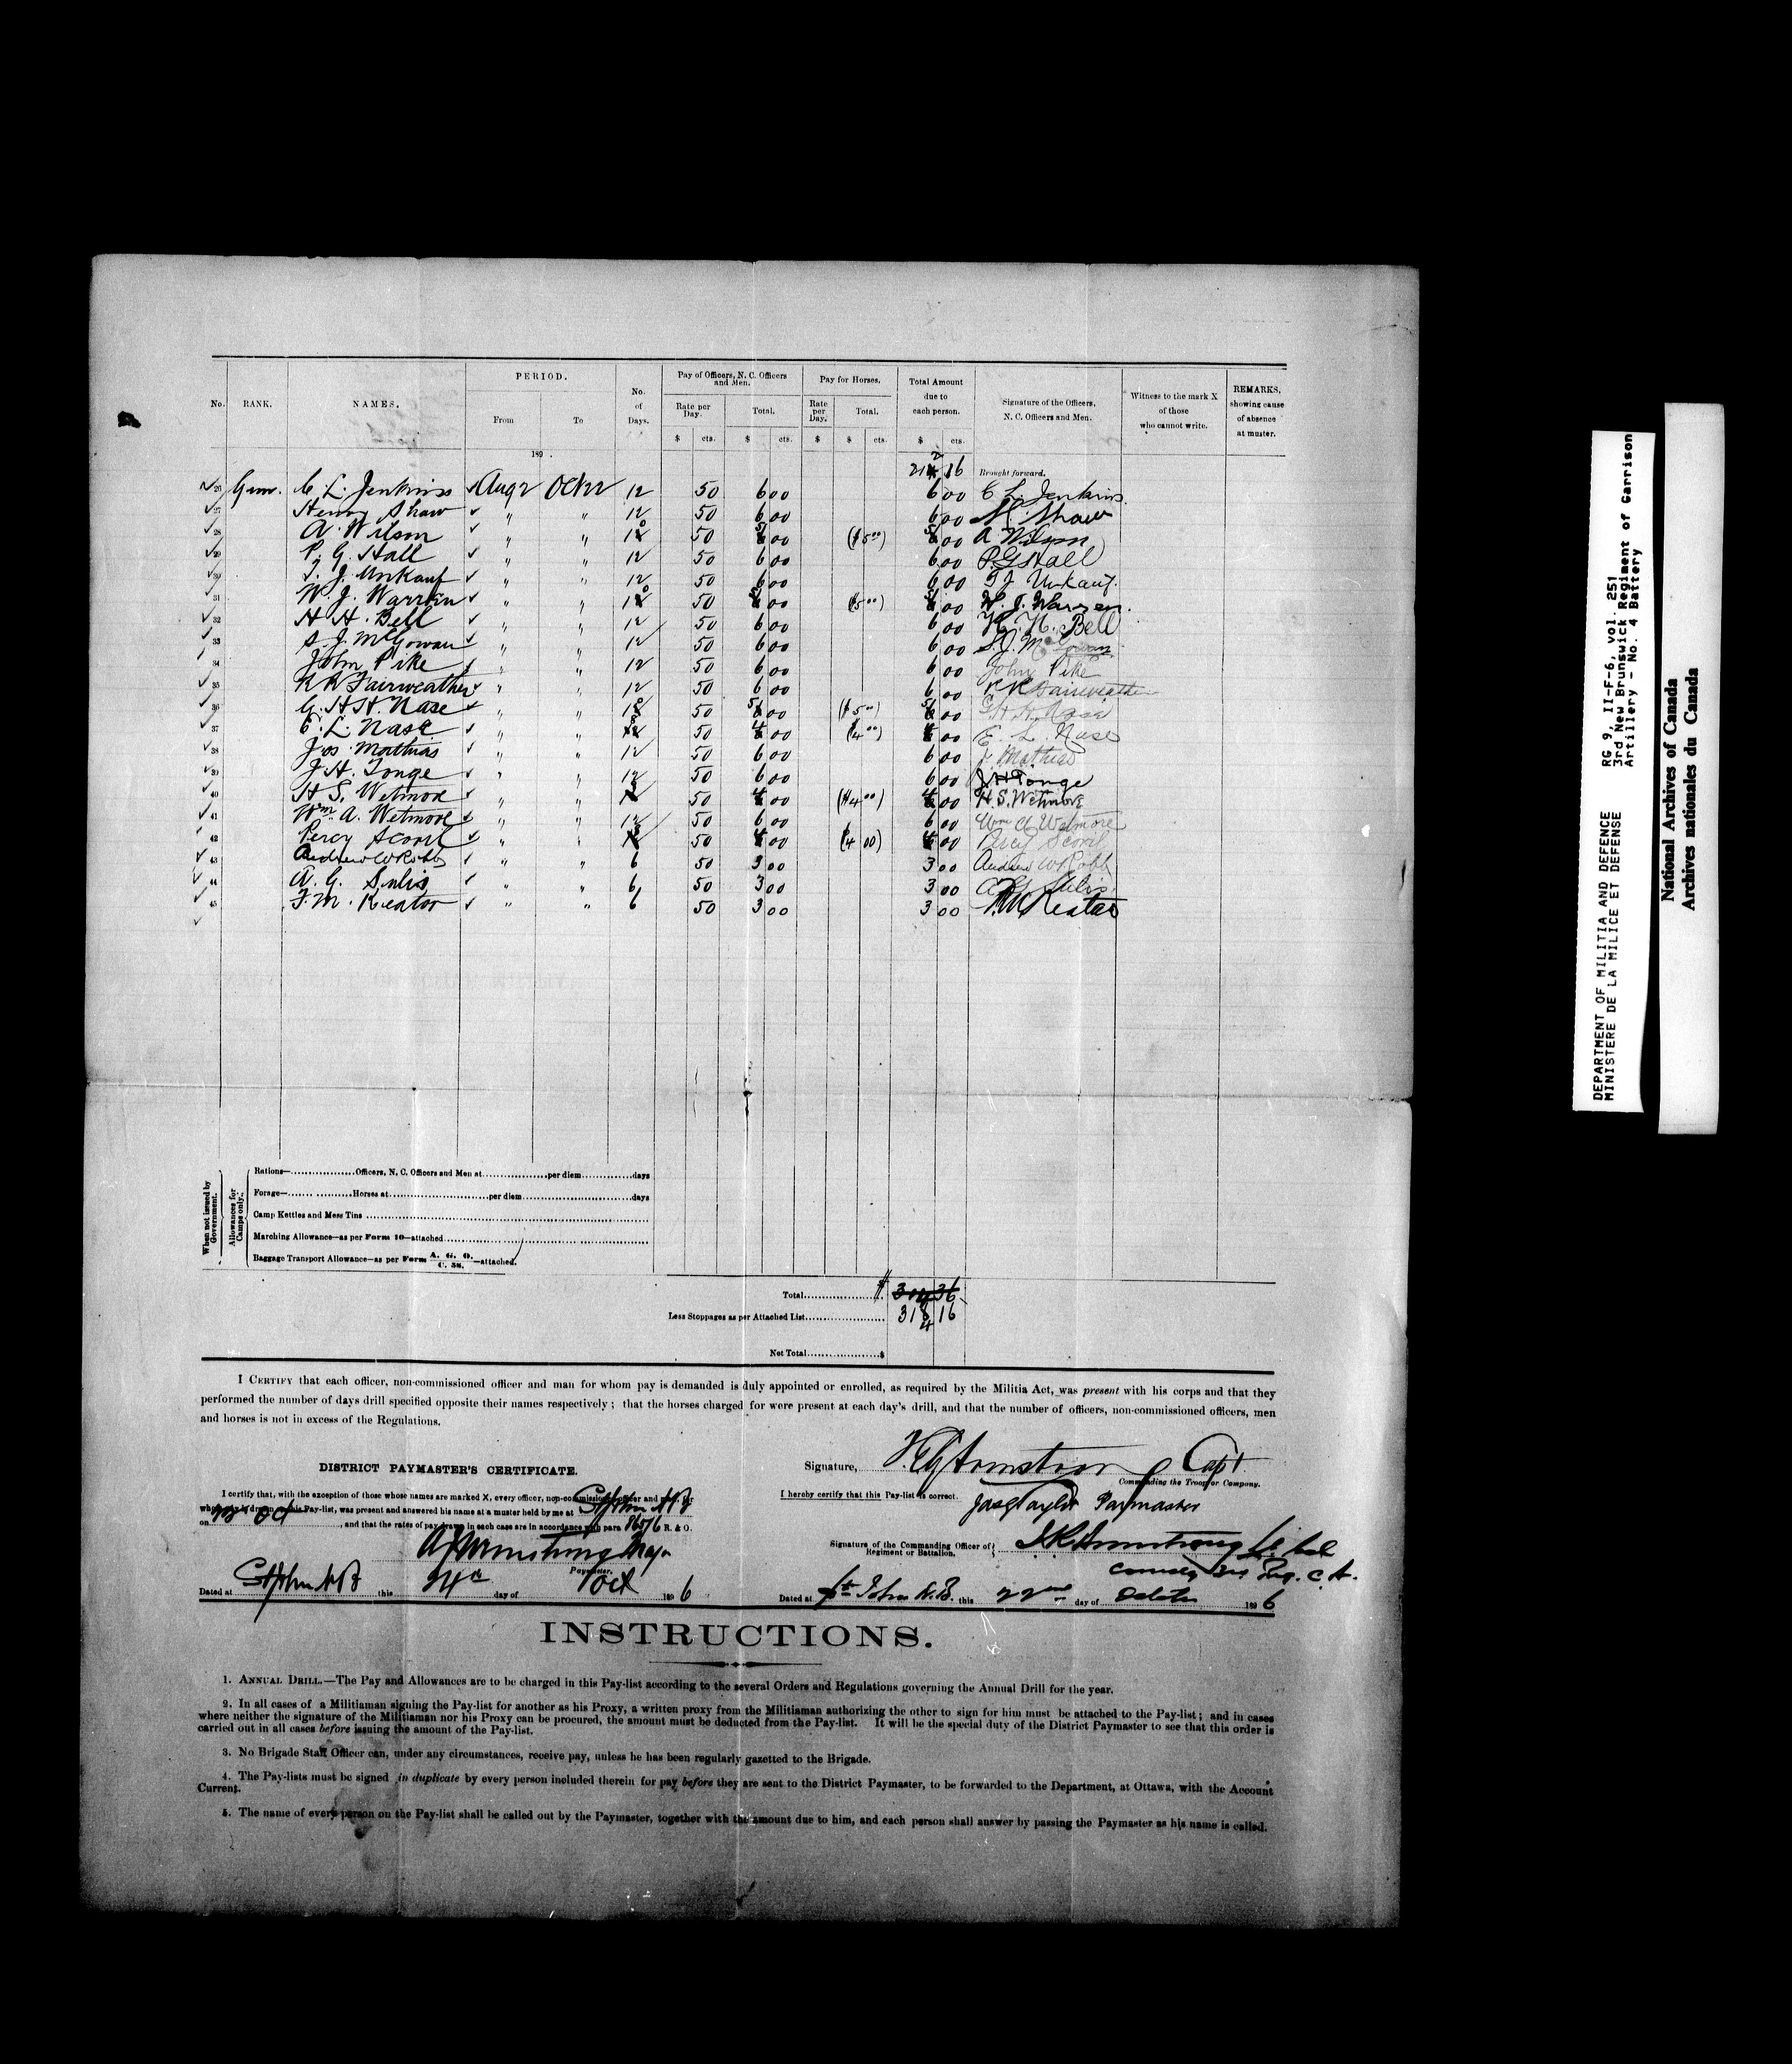 No. RANK. NAMES. PERIOD. No. of Days. Pay of Officers, N. C. Officers and Men. Pay for Horses. Total Amount due to each person. Signature of the Officers, N. C. Officers and Men. Witness to the mark X of those who cannot write. REMARKS, showing cause of absence at muster.
From To Rate per Day. Total. Rate per Day. Total.
$ cts. $ cts. $ $ cts. $ cts.
189 .
16 Brought forward.
26 Gun. C. L. Jenkins Aug 2 Oct 22 12 50 6 00 6 00 C L. Jenkins
27 Henry Shaw " " 12 50 6 00 6 00 H. Shaw
28 A. Wilson " " 10 50 5 00 ($5 00) 5 00 A Wilson
29 P. G. Hall " " 12 50 6 00 6 00 P. G Hall
30 T. J. Unkauf " " 12 50 6 00 6 00 T J Unkauf.
31 W. J. Warren " " 10 50 5 00 ($5 00) 5 00 W. J. Warren.
32 H H. Bell " " 12 50 6 00 6 00 H. H. Bell
33 S. J. McGowan " " 12 50 6 00 6 00 S. J. McGowan
34 John Pike " " 12 50 6 00 6 00 John Pike
35 R R Fairweather " " 12 50 6 00 6 00 R R Fairweather
36 G. H H. Nase " " 10 50 5 00 ($5 00) 5 00 G H H. Nase
37 E. L. Nase " " 8 50 4 00 ($4 00) 4 00 E. L. Nase
38 Jos. Matthias " " 12 50 6 00 6 00 J. Mathias
39 J. H. Tonge " " 12 50 6 00 6 00 J. H. Tonge
40 H S. Wetmore " " 8 50 4 00 ($4 00) 4 00 H. S. Wetmore
41 Wm. A. Wetmore " " 12 50 6 00 6 00 Wm A Wetmore
42 Percy Scovil " " 8 50 4 00 ($4 00) 4 00 Percy Scovil
43 Andrew W Robb " " 6 50 3 00 3 00 Andrew W Robb
44 A. G. Sulis " " 6 50 3 00 3 00 A. G. Sulis
45 F. M. Keator " " 6 50 3 00 3 00 F. M. Keator
When not issued by Government.
Allowances for Camps only.
Rations— Officers, N. C. Officers and Men at per diem days
Forage— Horses at per diem days
Camp Kettles and Mess Tins
Marching Allowance—as per Form 10—attached
Baggage Transport Allowance—as per Form A. G. O. C. 58. —attached.
Total $ 304 36
Less Stoppages as per Attached List 314 16
Net Total $
I CERTIFY that each officer, non-commissioned officer and man for whom pay is demanded is duly appointed or enrolled, as required by the Militia Act, was present with his corps and that they
performed the number of days drill specified opposite their names respectively; that the horses charged for were present at each day's drill, and that the number of officers, non-commissioned officers, men
and horses is not in excess of the Regulations.
Signature, Armstrong Capt.
Commanding the Troop or Company.
DISTRICT PAYMASTER'S CERTIFICATE.
I certify that, with the exception of those whose names are marked X, every officer, non-commissioned officer and man, for
whom pay is drawn in this Pay-list, was present and answered his name at a muster held by me at St John NB
on 22nd Oct , and that the rates of pay drawn in each case are in accordance with para 865/6 R. & O.
Armstrong Major
Paymaster.
Dated at St John NB this 24th day of Oct 1896
I hereby certify that this Pay-list is correct.
Jas G Taylor Paymaster
Signature of the Commanding Officer of Regiment or Battalion. J. R. Armstrong Lt. Col
Comdg 3rd Reg. C. A.
Dated at St. John N. B. this 22nd day of October 1896
INSTRUCTIONS.
1. ANNUAL DRILL.—The Pay and Allowances are to be charged in this Pay-list according to the several Orders and Regulations governing the Annual Drill for the year.
2. In all cases of a Militiaman signing the Pay-list for another as his Proxy, a written proxy from the Militiaman authorizing the other to sign for him must be attached to the Pay-list; and in cases
where neither the signature of the Militiaman nor his Proxy can be procured, the amount must be deducted from the Pay-list. It will be the special duty of the District Paymaster to see that this order is
carried out in all cases before issuing the amount of the Pay-list.
3. No Brigade Staff Officer can, under any circumstances, receive pay, unless he has been regularly gazetted to the Brigade.
4. The Pay-lists must be signed in duplicate by every person included therein for pay before they are sent to the District Paymaster, to be forwarded to the Department, at Ottawa, with the Account
Current.
5. The name of every person on the Pay-list shall be called out by the Paymaster, together with the amount due to him, and each person shall answer by passing the Paymaster as his name is called.
DEPARTMENT OF MILITIA AND DEFENCE
MINISTERE DE LA MILICE ET DEFENSE
RG 9, II-F-6, vol. 251
3rd New Brunswick Regiment of Garrison
Artillery - No. 4 Battery
National Archives of Canada
Archives nationales du Canada